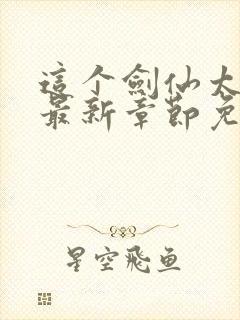 這个劍仙太
最新章節免
星空飛鱼